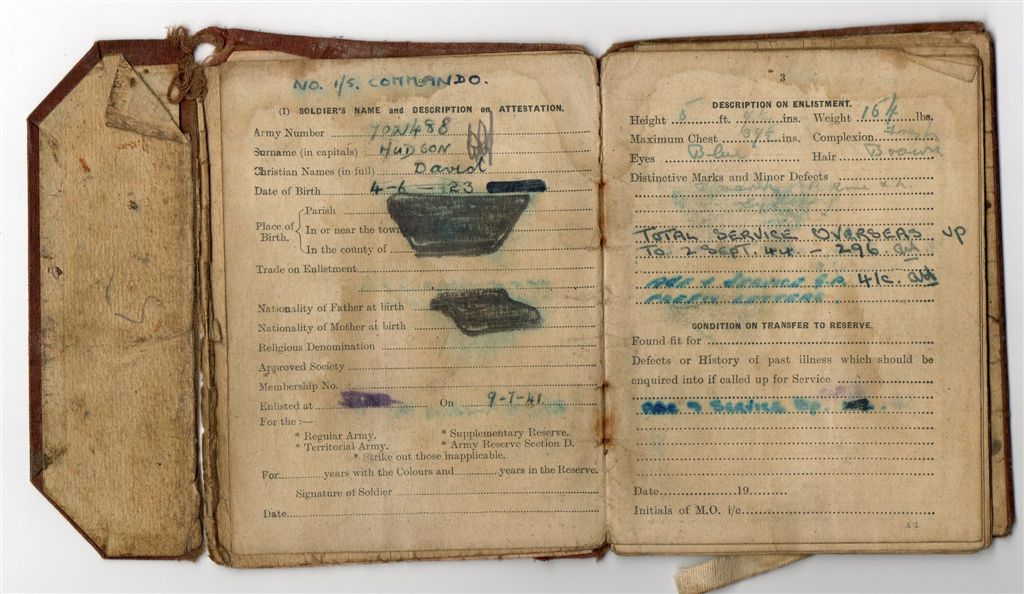 NO. 1/5. COMMANDO.
(I) SOLDIER'S NAME and DESCRIPTION on ATTESTATION.
Army Number
Surname (in capitals) HUDSON
Christian Names (in full) David
Date of Birth 4-6-23
Place of Birth.
Parish
In or near the town
In the county of
Trade on Enlistment
Nationality of Father at birth
Nationality of Mother at birth
Religious Denomination
Approved Society
Membership No.
Enlisted at On 9-7-41.
For the :—
* Regular Army. * Supplementary Reserve.
* Territorial Army. * Army Reserve Section D.
* Strike out those inapplicable.
For years with the Colours and years in the Reserve.
Signature of Soldier
Date
3
DESCRIPTION ON ENLISTMENT.
Height 5 ft. ins. Weight 154 lbs.
Maximum Chest ins. Complexion Fresh
Eyes Blue Hair Brown
Distinctive Marks and Minor Defects
TOTAL SERVICE OVERSEAS UP
TO 2 SEPT. 44 – 296
AGE & SERVICE G.P. 4/C.
CONDITION ON TRANSFER TO RESERVE.
Found fit for
Defects or History of past illness which should be
enquired into if called up for Service
Age & Service Gp.
Date 19
Initials of M.O. i/c
A 2